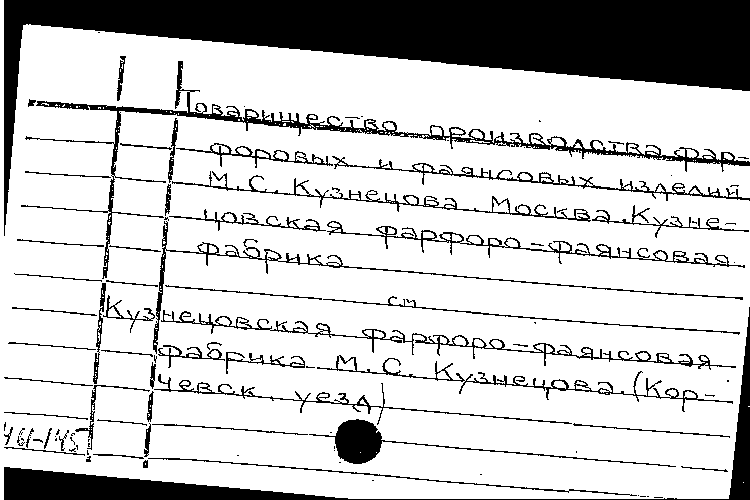 Товарищество производства фар-
форовых и фаянсовых изделий
М.С. Кузнецова. Москва. Кузне-
цовская фарфоро-фаянсовая
фабрика
см
Кузнецовская фарфоро-фаянсовая
фабрика М.С. Кузнецова. (Кор-
чевск. уезд)
461-145